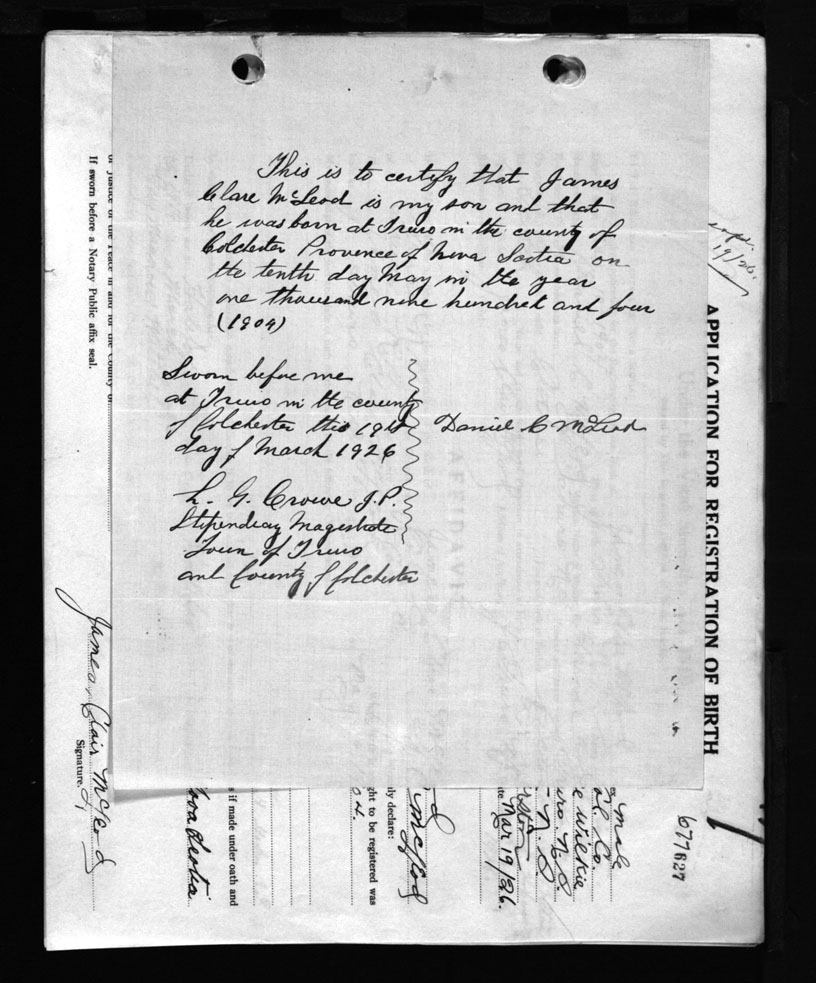 This is to certify that James
Clare McLeod is my son and that
he was born at Truro in the county of
Colchester Province of Nova Scotia on
the tenth day May in the year
one thousand nine hundred and four
(1904)
Sworn before me
at Truro in the county
of Colchester this 19th
day of March 1926
Daniel C McLeod
L. G. Crowe J.P.
Stipendiay Magestrate
Town of Truro
and County of Colchester
APPLICATION FOR REGISTRATION OF BIRTH
19/26
677627
male
Co.
Wilkie
N.S.
N.S
Mar 19/26.
ly declare:
McLeod
ght to be registered was
04.
s if made under oath and
Nova Scotia
or Justice of the Peace in and for the County of
If sworn before a Notary Public affix seal.
James Clair McLeod
Signature.